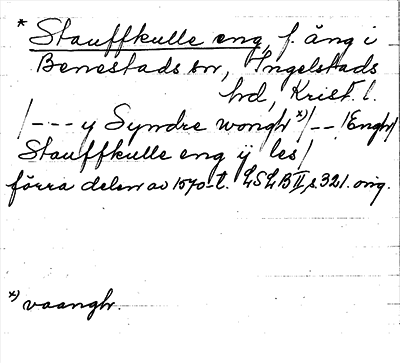 * Stauffkulle eng, f. äng i
Benestads sn, Ingelstads
hd, Krist. l.
/--- y Syndre wongh x)/-- /Engh/
Stauffkulle eng ÿ les/
förra delen av 1570-t. LSLB II, s. 321. orig.
x) vaangh.